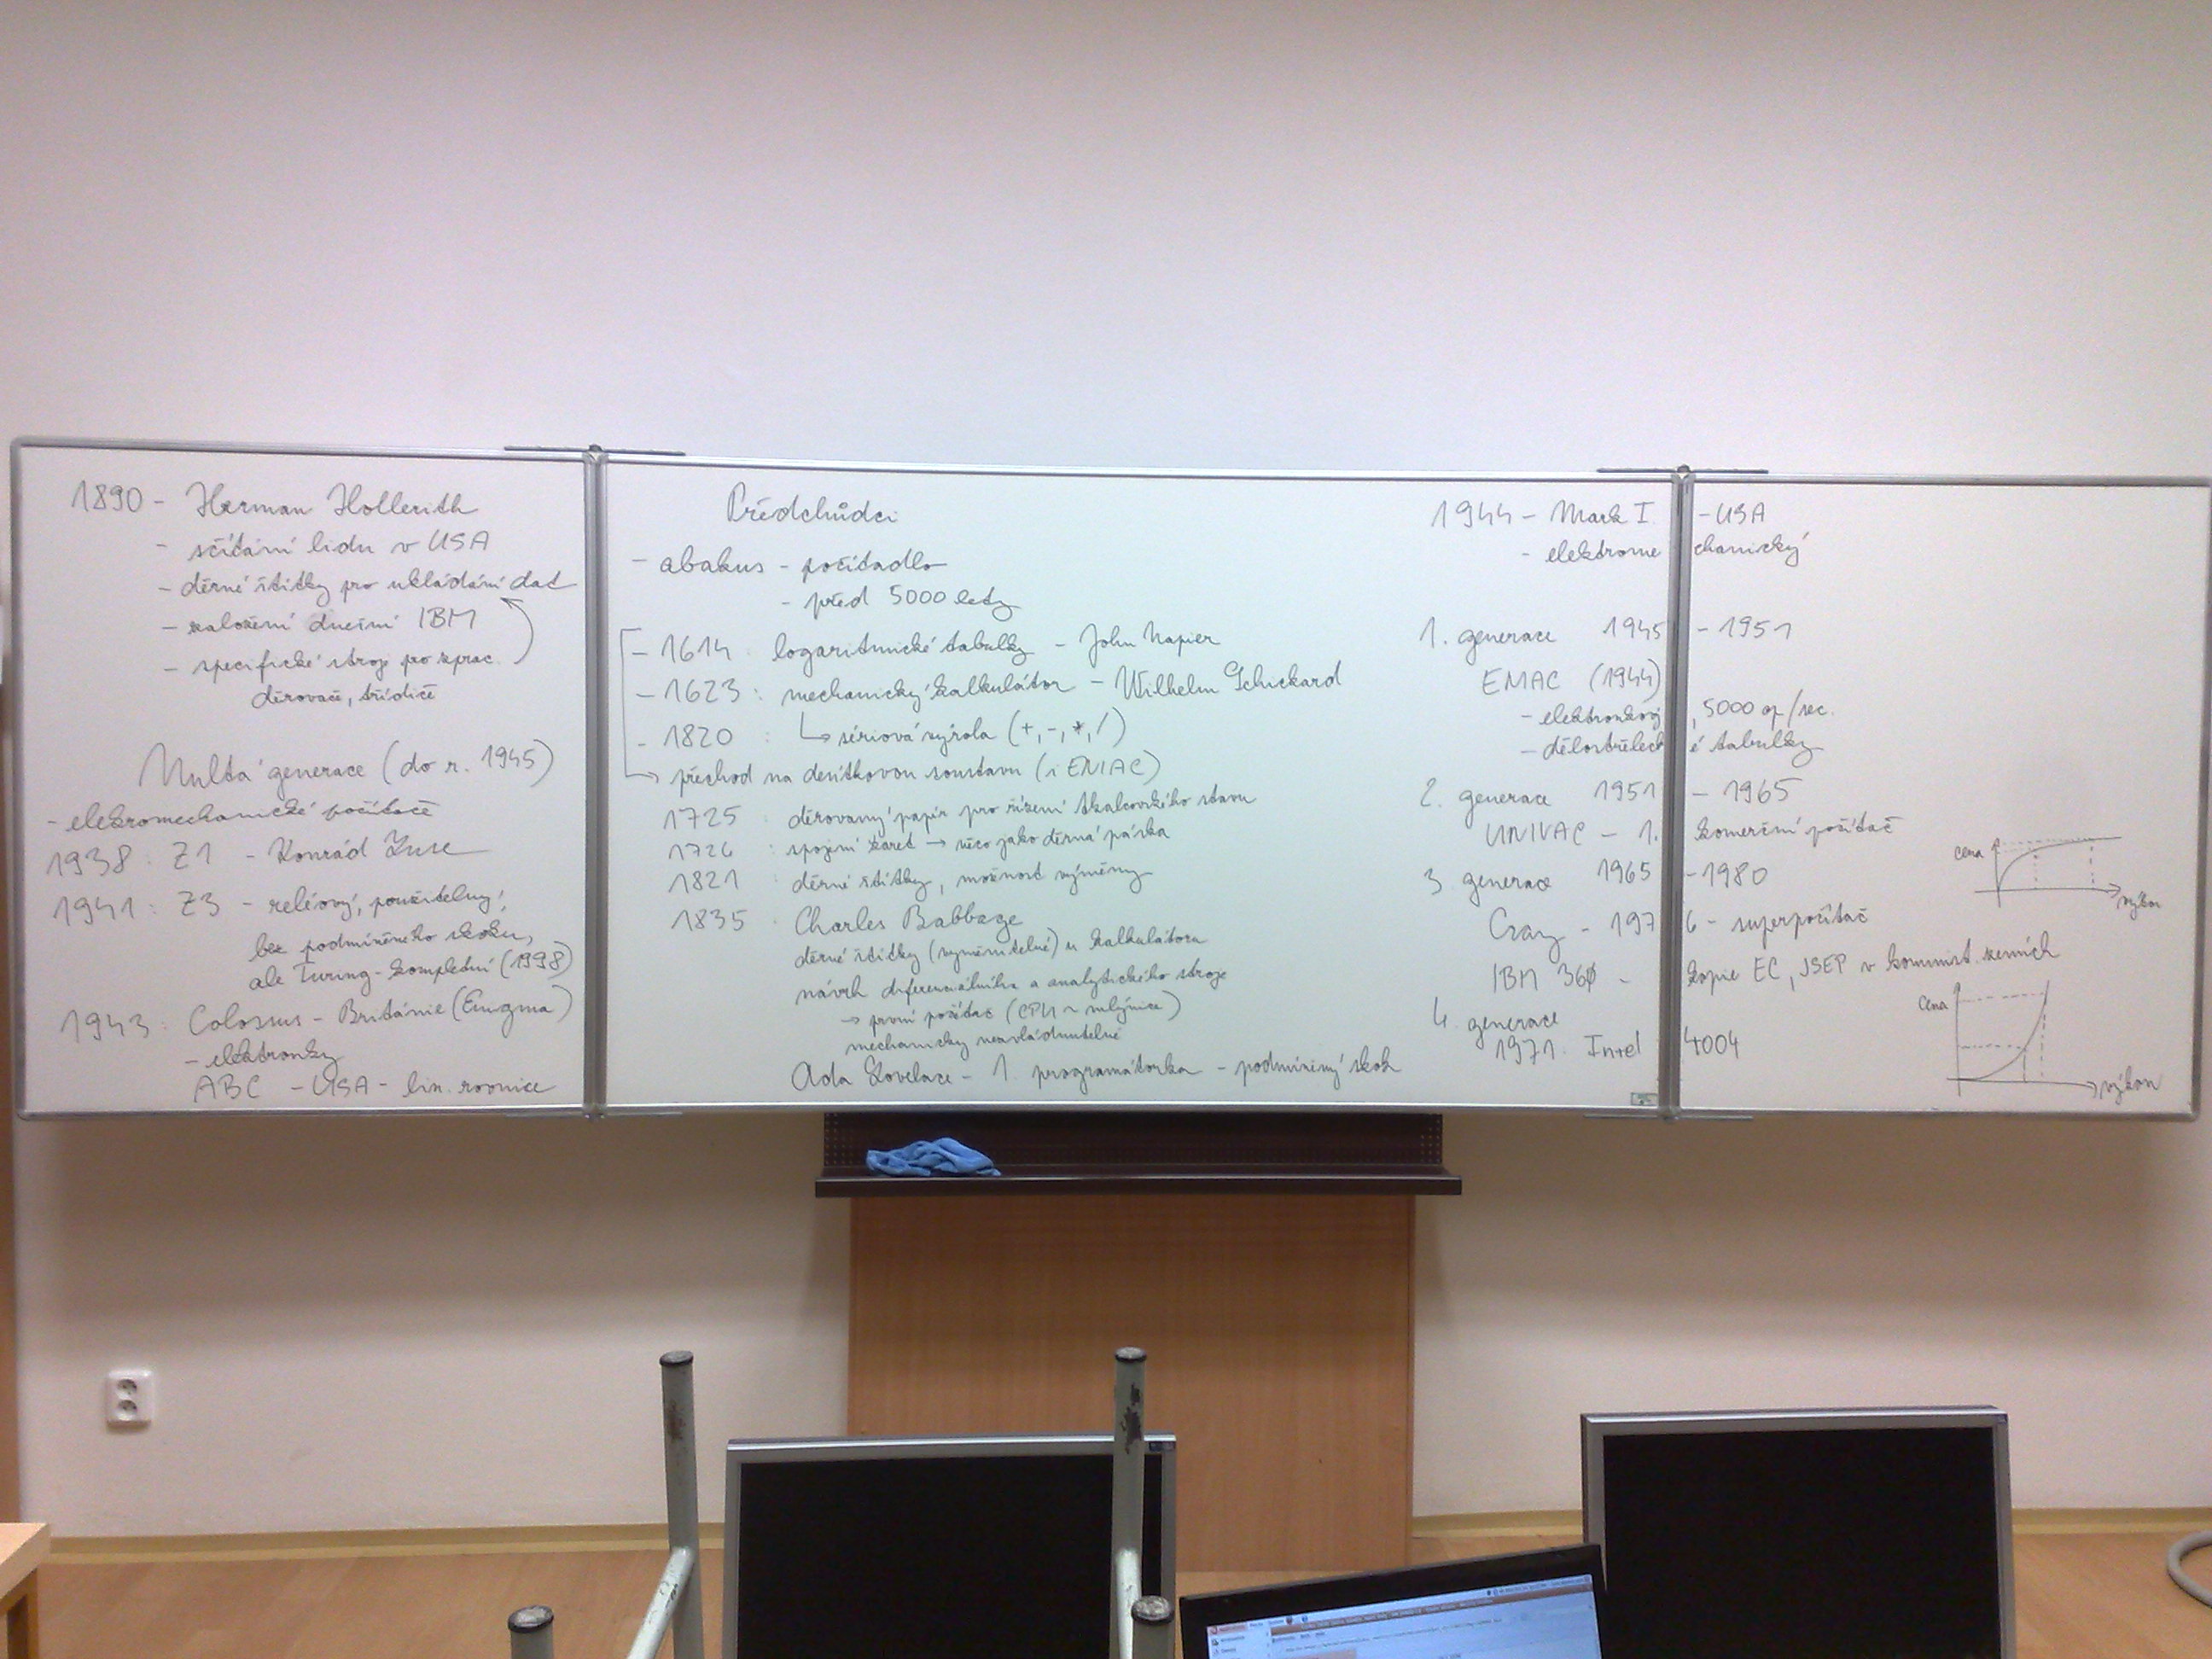 1890 - Herman Hollerith
- sčítání lidu v USA
- děrné štítky pro ukládání dat
- založení dnešní IBM
- specifické stroje pro zprac.
děrovače, třídiče
Nultá generace (do r. 1945)
- elekromechanické počítače
1938: Z1 - Konrád Zuse
1941: Z3 - reléový, použitelný,
bez podmíněného skoku,
ale Turing-kompletní (1998)
1943: Colossus - Británie (Enigma)
- elektronky
ABC - USA - lin. rovnice
Předchůdci
- abakus - počítadlo
- před 5000 lety
- 1614: logaritmické tabulky - John Napier
- 1623: mechanický kalkulátor - Wilhelm Schickard
- 1820: ↳ sériová výroba (+, -, *, /)
→ přechod na desítkovou soustavu (i ENIAC)
1725: děrovaný papír pro řízení tkalcovského stavu
1726: spojení karet → něco jako děrná páska
1821: děrné štítky, možnost výměny
1835: Charles Babbage
děrné štítky (vyměnitelné) u kalkulátoru
návrh diferenciálního a analytického stroje
→ první počítač (CPU ~ mlýnice)
mechanicky nezvládnutelné
Ada Lovelace - 1. programátorka - podmíněný skok
1944 - Mark I. - USA
- elektromechanický
1. generace 1945 - 1951
ENIAC (1944)
- elektronkový, 5000 op/sec.
- dělostřelecké tabulky
2. generace 1951 - 1965
UNIVAC - 1. komerční počítač
3. generace 1965 - 1980
Cray - 1976 - superpočítač
IBM 360 - kopie EC, JSEP v kommist. zemích
4. generace
1971: Intel 4004
cena
výkon
cena
výkon